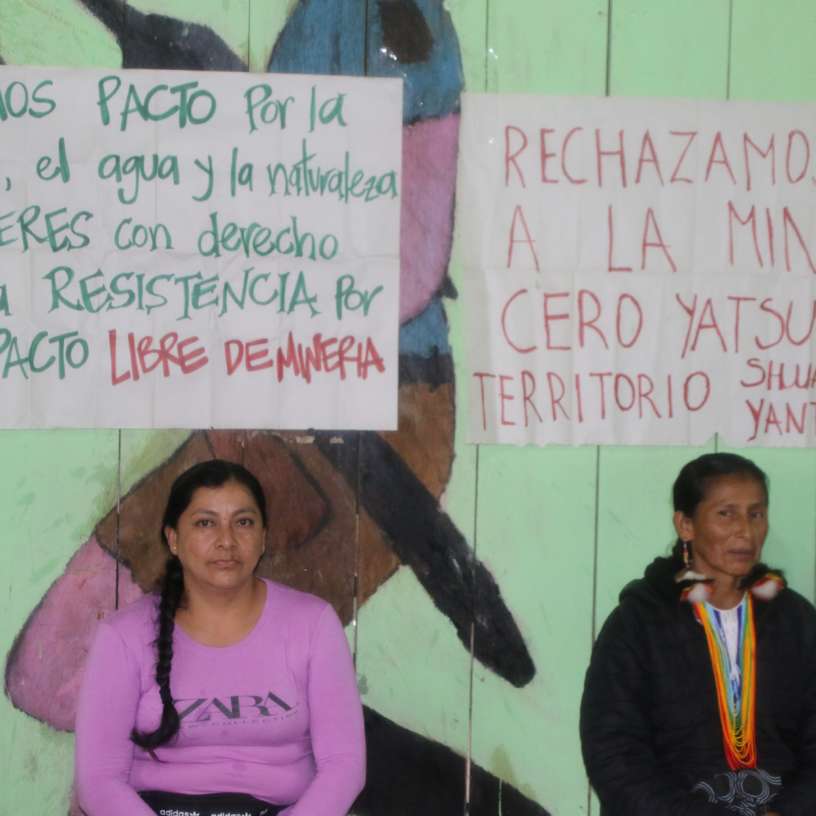 MOS PACTO Por la
, el agua y la naturaleza
ERES con derecho
a RESISTENCIA Por
PACTO LIBRE DE MINERIA
RECHAZAMOS
A LA MIN
CERO YATSU
TERRITORIO SHUA
YANT
ZARA
adidas
adidas